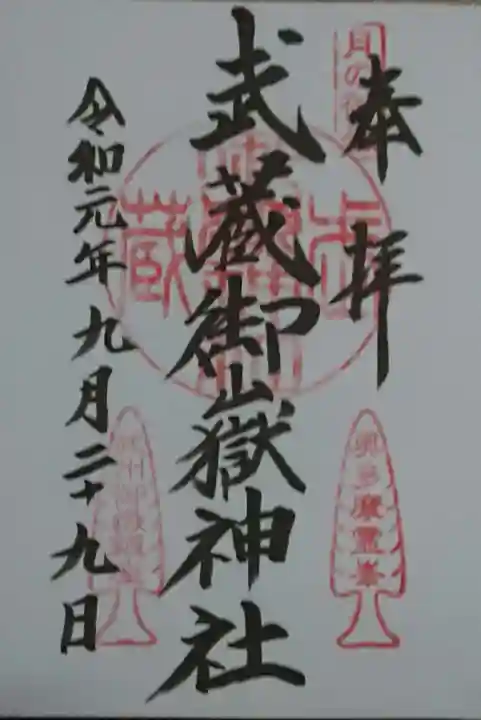 奉拝
武蔵御嶽神社
令和元年九月二十九日
奥多摩霊峯